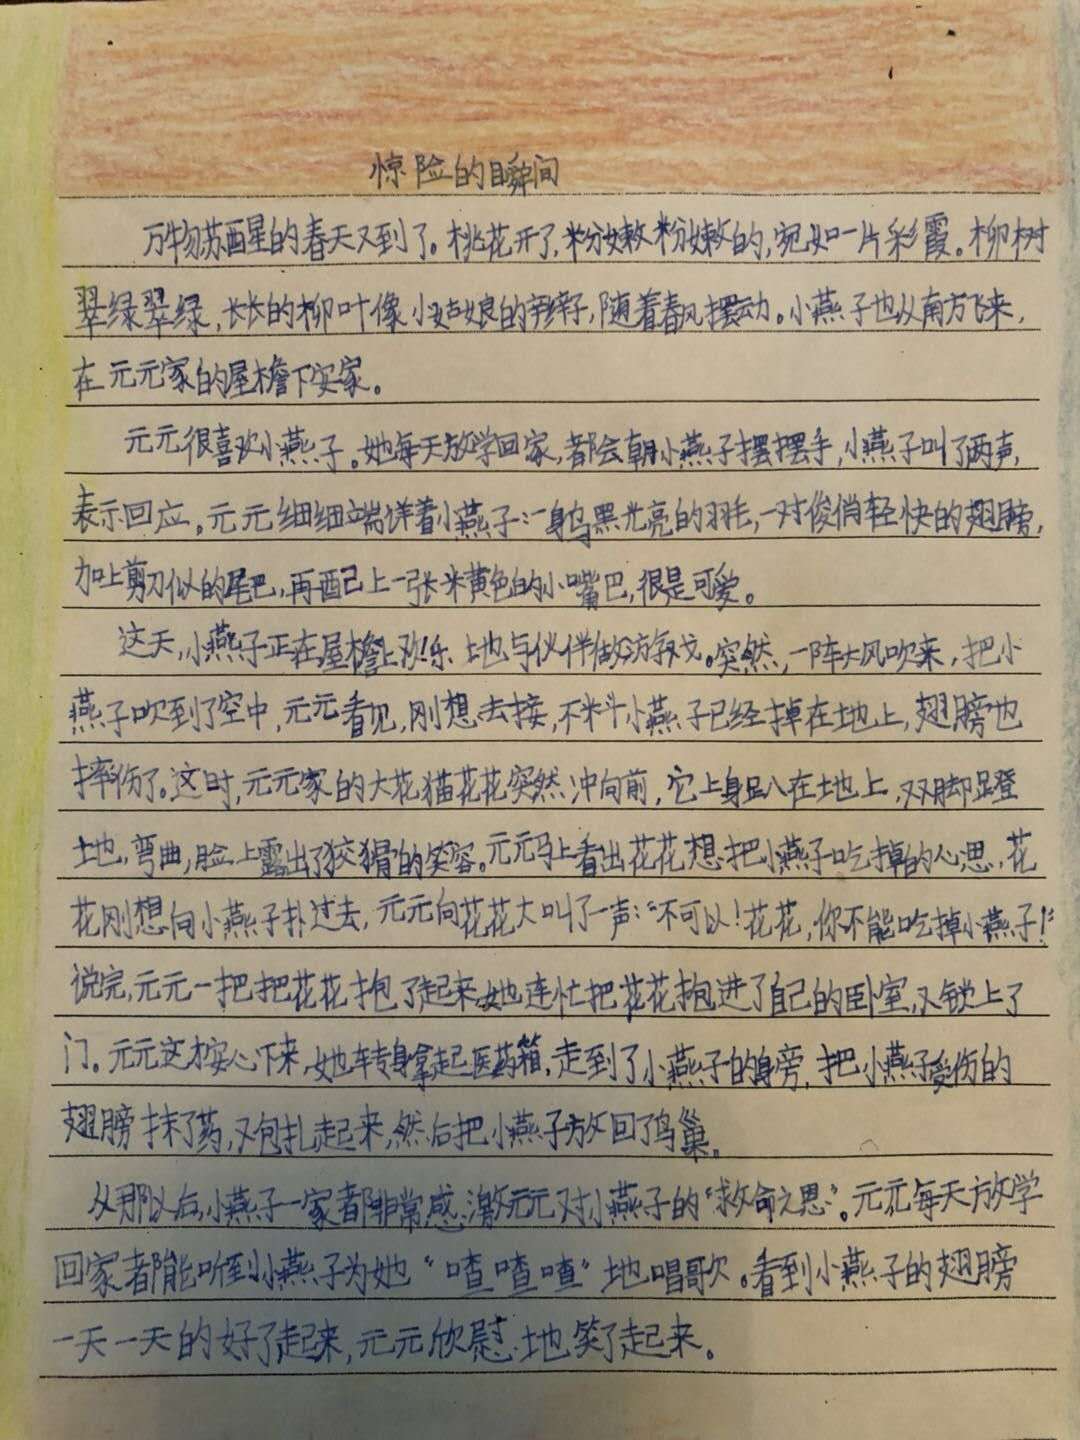 惊险的瞬间
万物苏醒的春天又到了。桃花开了,粉嫩粉嫩的,宛如一片彩霞。柳树
翠绿翠绿,长长的柳叶像小姑娘的辫子,随着春风摆动。小燕子也从南方飞来,
在元元家的屋檐下安家。
元元很喜欢小燕子。她每天放学回家,都会朝小燕子摆摆手,小燕子叫了两声,
表示回应。元元细细端详着小燕子:一身乌黑光亮的羽毛,一对俊俏轻快的翅膀,
加上剪刀似的尾巴,再配上一张米黄色的小嘴巴,很是可爱。
这天,小燕子正在屋檐上欢乐地与伙伴做游戏。突然,一阵大风吹来,把小
燕子吹到了空中,元元看见,刚想去接,不料小燕子已经掉在地上,翅膀也
摔伤了。这时,元元家的大花猫花花突然冲向前,它上身趴在地上,双脚蹬
地,弯曲,脸上露出了狡猾的笑容。元元马上看出花花想把小燕子吃掉的心思,花
花刚想向小燕子扑过去,元元向花花大叫了一声:“不可以!花花,你不能吃掉小燕子!”
说完,元元一把把花花抱了起来,她连忙把花花抱进了自己的卧室,又锁上了
门。元元这才安心下来,她转身拿起医药箱,走到了小燕子的身旁,把小燕子受伤的
翅膀抹了药,又包扎起来,然后把小燕子放回了鸟巢。
从那以后,小燕子一家都非常感激元元对小燕子的“救命之恩”。元元每天放学
回家都能听到小燕子为她“喳喳喳”地唱歌。看到小燕子的翅膀
一天一天的好了起来,元元欣慰地笑了起来。